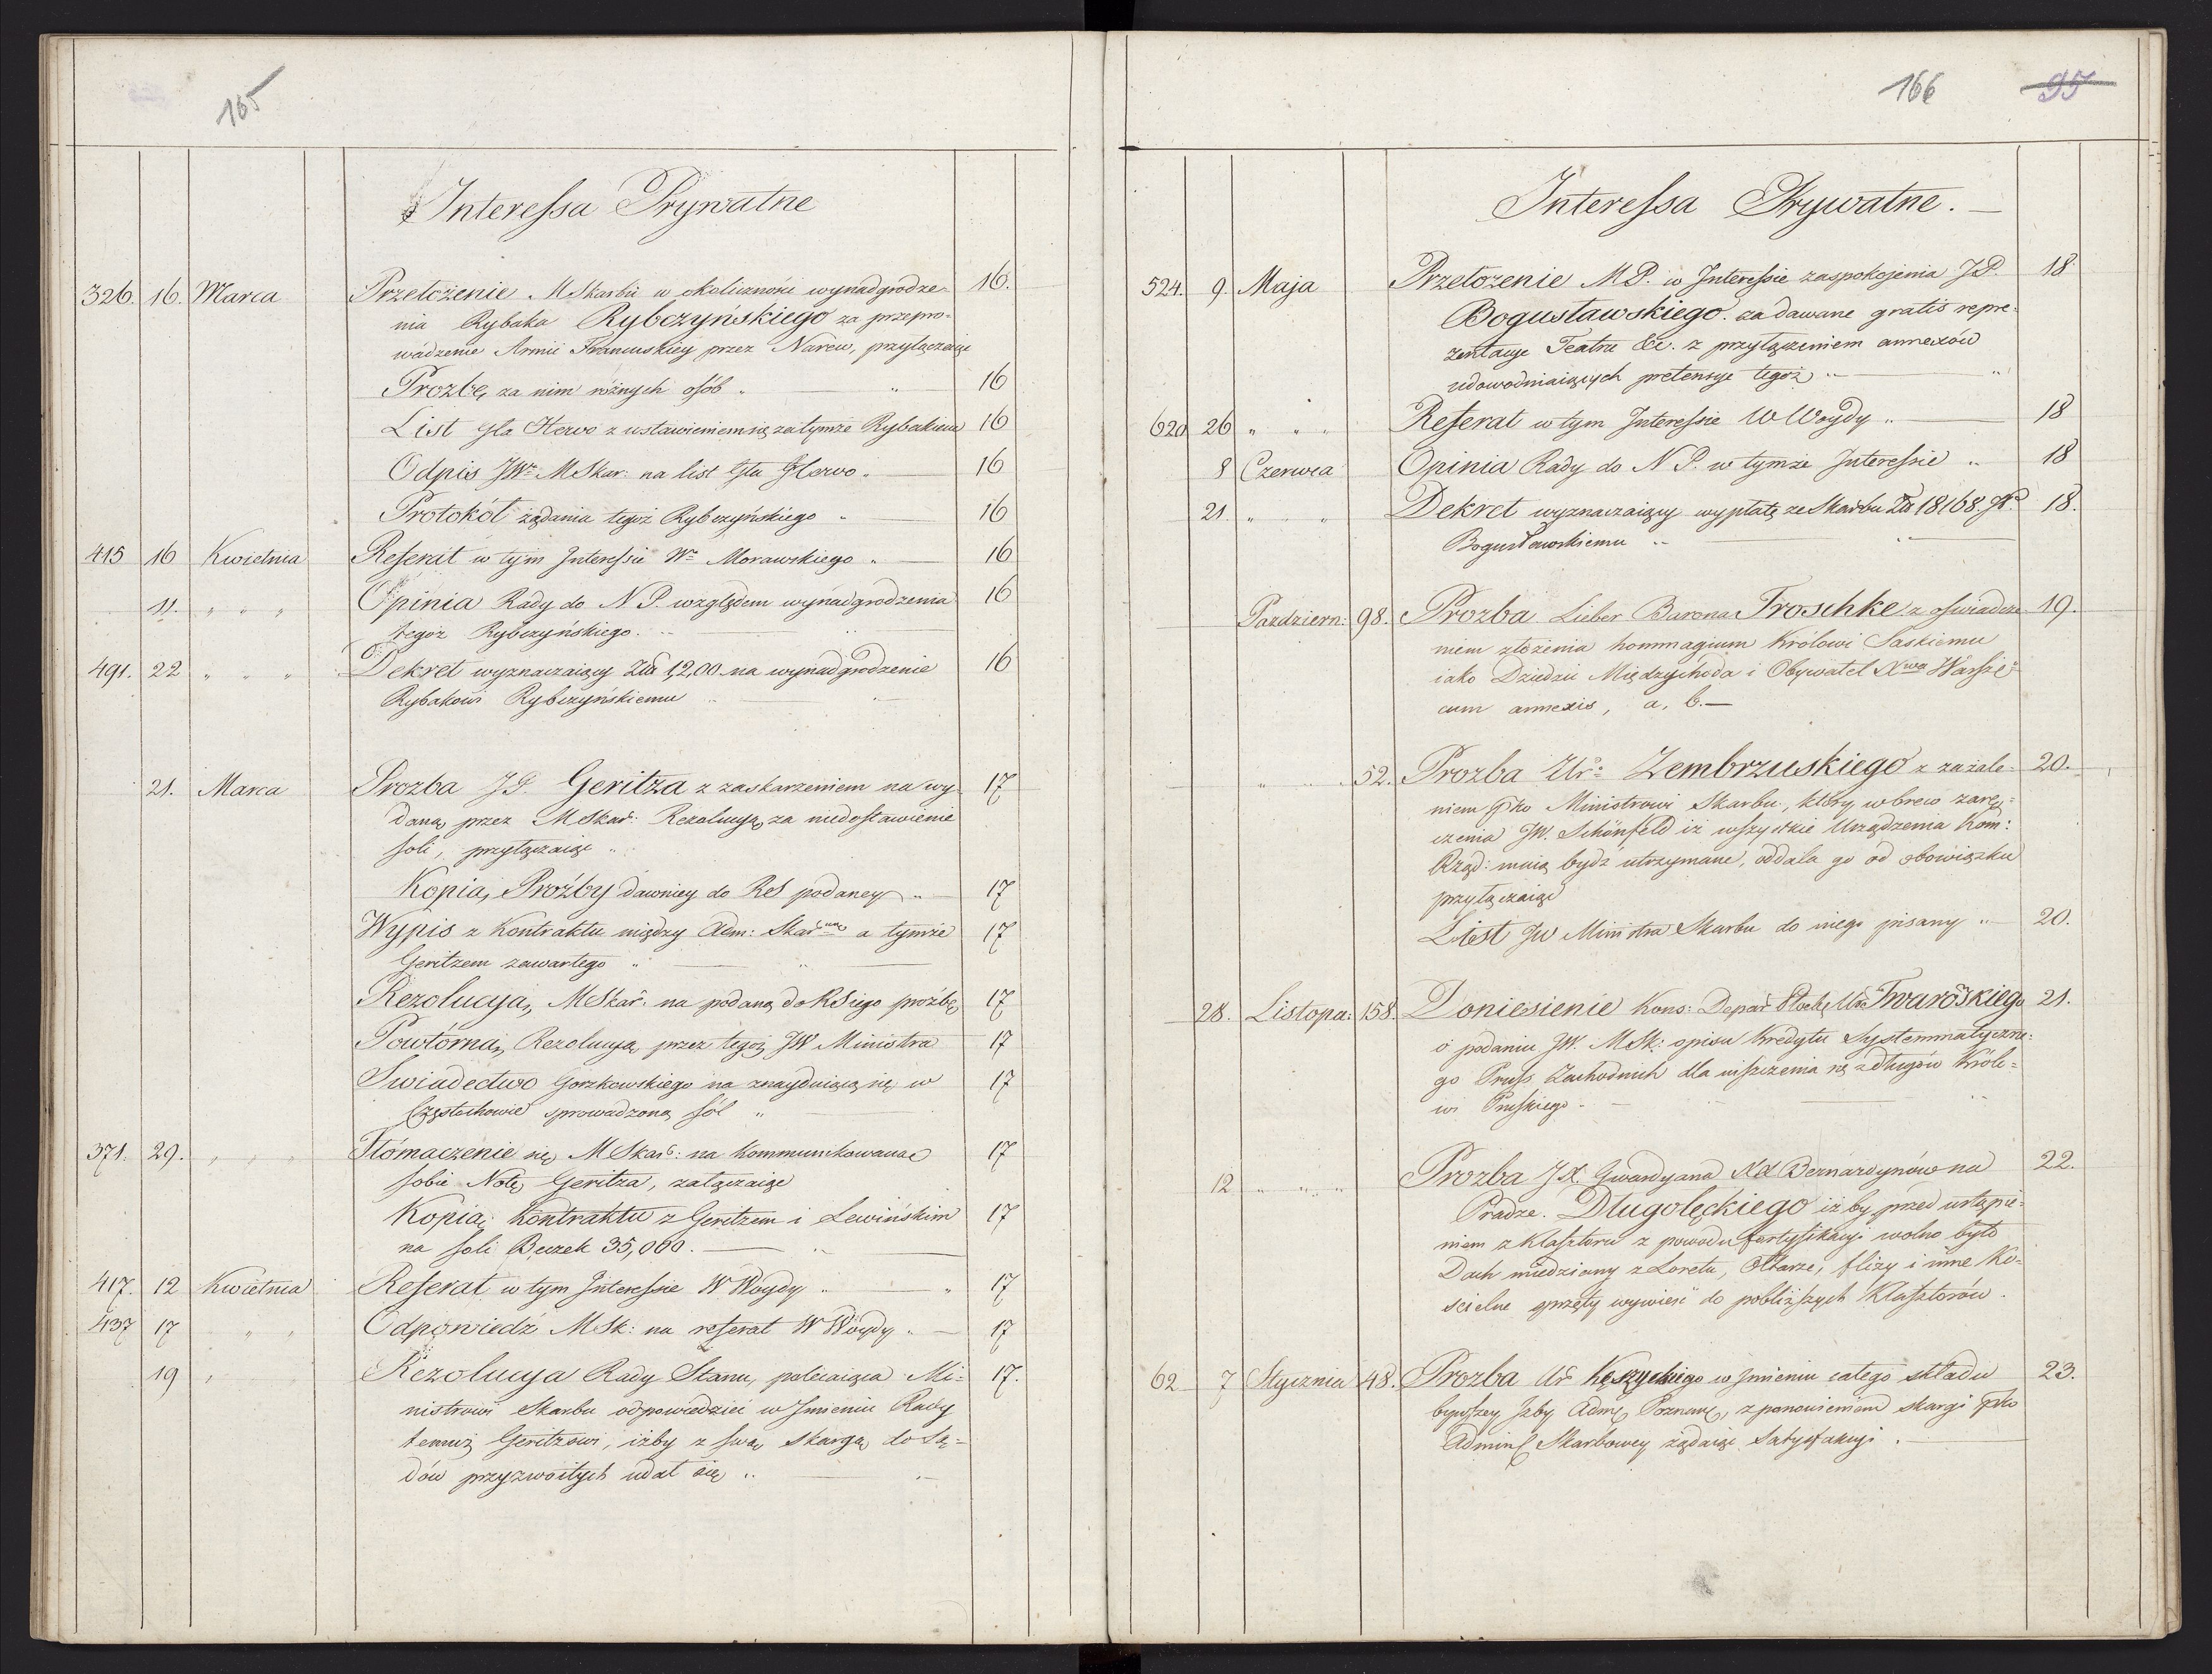 165
Interessa Prywatne
326. 16. Marca Przełożenie MSkarbu w okoliczności wynadgrodze- 16.
nia Rybaka Rybczyńskiego za przepro-
wadzenie Armii Francuskiey przez Narew, przyłączaiąc
Prozbę za nim różnych osób „ „ 16
List Gła Hervo z ustawieniem się za tymże Rybakiem 16
Odpis JWo MSkar: na list Gła Hervo „ 16
Protokół żądania tegoż Rybczyńskiego „ 16
415 16 Kwietnia Referat w tym Interessie Wo Morawskiego „ 16
11. „ „ „ Opinia Rady do N P. względem wynadgrodzenia 16
tegoż Rybczyńskiego. „ „
491. 22 „ „ „ Dekret wyznaczaiący Złł 1,2,00 na wynadgrodzenie 16
Rybakowi Rybczyńskiemu „ „
21. Marca Prozba JP. Geritza z zaskarzeniem na wy- 17
daną przez MSkar: Rezolucyą za niedostawienie
soli, przyłączaiąc „
Kopią Prozby dawniey do RS podaney „ 17
Wypis z Kontraktu między Adm: Skarną a tymże 17
Geritzem zawartego „ „
Rezolucyą MSkar: na podaną do RS iego prozbę 17
Powtórną Rezolucyą przez tegoż JW Ministra 17
Swiadectwo Gorzkowskiego na znayduiącą się w 17
Częstochowie sprowadzoną sól „
371. 29. „ „ „ Tłómaczenie się MSkar: na kommunikowaną 17
sobie Notę Geritza, załączaiąc
Kopią Kontraktu z Geritzem i Lewińskim 17
na soli Beczek 35,000. „
417. 12 Kwietnia Referat w tym Interessie W Woydy „ „ 17
437 17 „ „ Odpowiedź MSk: na referat W Woydy „ 17
19 „ Rezolucya Rady Stanu, polecaiąca Mi- 17.
nistrowi Skarbu odpowiedzieć w Imieniu Rady
temuż Geritzowi, iżby z swą skargą do Są-
dów przyzwoitych udał się „ „
166 95
Interessa Prywatne.
524. 9. Maja Przełożenie M P. w Interessie zaspokojenia JP. 18
Bogusławskiego. za dawane gratis repre-
zentacye Teatru &c. z przyłączeniem annexów
udowodniaiących pretensye tegoż „ „
620 26 „ „ „ Referat w tym Interessie W Woydy „ 18
8 Czerwca Opinia Rady do N P. w tymże Interessie „ 18
21. „ „ Dekret wyznaczaiący wypłatę ze Skarbu Złł 18168. 18.
Bogusławskiemu „ „
Pazdziern: 98. Prozba Lieber Barona Troschke z oswiadcze- 19.
niem złożenia hommagium Królowi Saskiemu
iako Dziedzic Międzychoda i Obywatel Xwa Warsze:
cum annexis, a, b.
„ „ 52. Prozba Uro: Zembrzuskiego z zażale- 20.
niem pko Ministrowi Skarbu, który wbrew zarę-
czenia JW. Schönfeld iż wszystkie Urządzenia Kom:
Rząd: maią bydz utrzymane, oddala go od obowiązku
przyłączaiąc
List JW Ministra Skarbu do niego pisany „ 20.
28. Listopa: 158. Doniesienie Kons: Depar Płock: Twarowskiego 21.
o podaniu JW. MSk: opisu Kredytu Systemmatyczne-
go Pruss Zachodnich dla uiszczenia się z długów Króle-
wi Pruskiego. „
12 „ „ „ Prozba JX. Gwardyana XX Bernardynów na 22.
Pradze. Długołęckiego iżby przed ustąpie-
niem z klasztoru z powodu fortyfikacyi wolno było
Dach miedziany z Loretu, Ołtarze, flizy i inne Ko-
scielne sprzęty wywieść do pobliższych Klasztorów.
62 7 Stycznia 48. Prozba Ur Kęszyckiego w Imieniu całego składu 23.
bywszey Izby Admę Poznanę, z ponowieniem skargi pko
Admin Skarbowey żądaiąc Satysfakcyi.